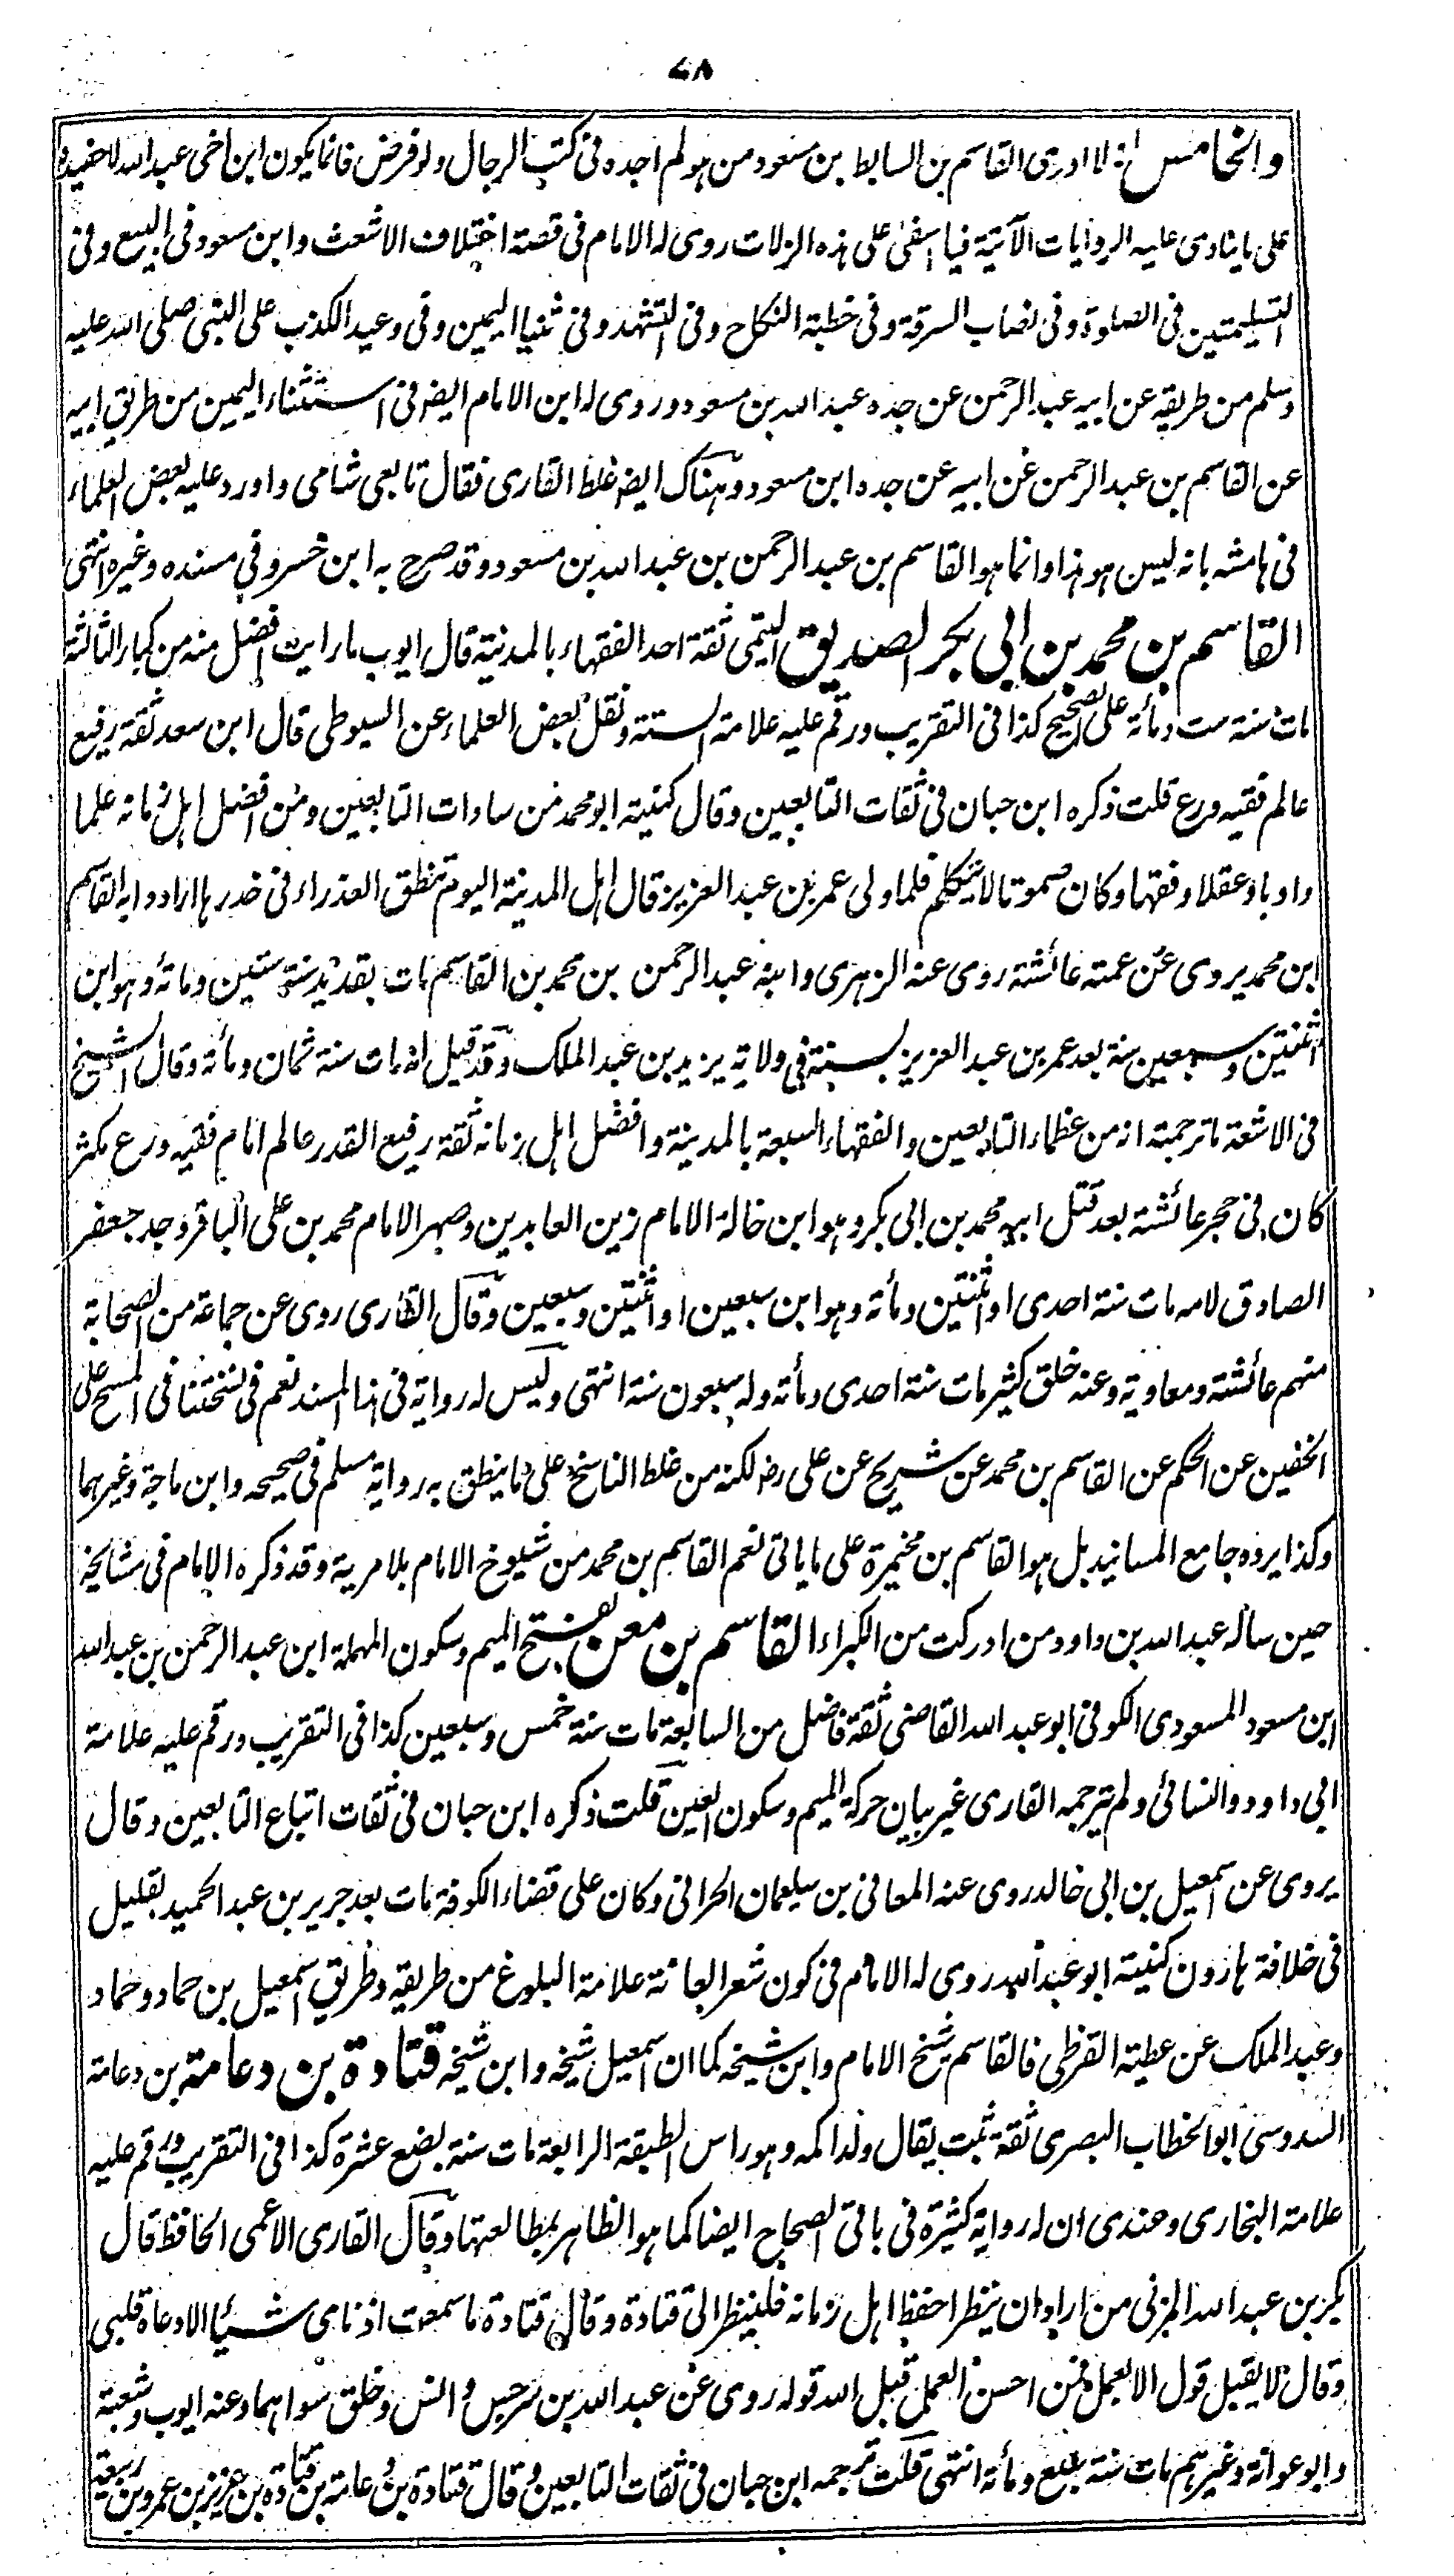 ٧٨
والخامس انه لا ادرى القاسم بن السابط بن مسعود من هو لم اجده فى كتب الرجال ولو فرض فانما يكون ابن اخى عبد الله لا حفيده
على ما ينادى عليه الروايات الآتية فيا اسفى على هذه الزلات روى له الامام فى قصة اختلاف الاشعث وابن مسعود فى البيع وفى
التسليمتين فى الصلوة وفى نصاب السرقة وفى خطبة النكاح وفى التشهد وفى ثنيا اليمين وفى وعيد الكذب على النبى صلى الله عليه
وسلم من طريقه عن ابيه عبد الرحمن عن جده عبد الله بن مسعود وروى له ابن الامام ايضا فى استثناء اليمين من طريق ابيه
عن القاسم بن عبد الرحمن عن ابيه عن جده ابن مسعود وهناك ايضا غلط القارى فقال تابعى شامى واورد عليه بعض العلماء
فى هامشه بانه ليس هو هذا وانما هو القاسم بن عبد الرحمن بن عبد الله بن مسعود وقد صرح به ابن خسرو فى مسنده وغيره انتهى
القاسم بن محمد بن ابى بكر الصديق التيمى ثقة احد الفقهاء بالمدينة قال ايوب ما رايت افضل منه من كبار الثالثة
مات سنة ست ومأة على الصحيح كذا فى التقريب ورقم عليه علامة الستة ونقل بعض العلماء عن السيوطى قال ابن سعد ثقة رفيع
عالم فقيه ورع قلت ذكره ابن حبان فى ثقات التابعين وقال كنيته ابو محمد من سادات التابعين ومن افضل اهل زمانه علما
وادبا وعقلا وفقها وكان صموتا لا يتكلم فلما ولى عمر بن عبد العزيز قال اهل المدينة اليوم تنطق العذراء فى خدرها ارادوا به القاسم
ابن محمد يروى عن عمته عائشة روى عنه الزهرى وابنه عبد الرحمن بن محمد بن القاسم مات بقديد سنة ستين ومأة وهو ابن
اثنتين وسبعين سنة بعد عمر بن عبد العزيز بسنة فى ولاية يزيد بن عبد الملك وقد قيل انه مات سنة ثمان ومأة وقال الشيخ
فى الاشعة ما ترجمته انه من عظماء التابعين والفقهاء السبعة بالمدينة وافضل اهل زمانه ثقة رفيع القدر عالم امام فقيه ورع مكثر
كان فى حجر عائشة بعد قتل ابيه محمد بن ابى بكر وهو ابن خالة الامام زين العابدين وصهر الامام محمد بن على الباقر وجد جعفر
الصادق لامه مات سنة احدى او اثنتين ومأة وهو ابن سبعين او اثنتين وسبعين وقال القارى روى عن جماعة من الصحابة
منهم عائشة ومعاوية وعنه خلق كثير مات سنة احدى ومأة وله سبعون سنة انتهى وليس له رواية فى هذا المسند نعم فى نسختنا فى المسح على
الخفين عن الحكم عن القاسم بن محمد عن شريح عن على رض لكنه من غلط الناسخ على ما ينطق به رواية مسلم فى صحيحه وابن ماجة وغيرهما
وكذا يرده جامع المسانيد بل هو القاسم بن مخيمرة على ما ياتى نعم القاسم بن محمد من شيوخ الامام بلا مرية وقد ذكره الامام فى مشايخه
حين ساله عبد الله بن داود من ادركت من الكبراء القاسم بن معن بفتح الميم وسكون المهملة ابن عبد الرحمن بن عبد الله
ابن مسعود المسعودى الكوفى ابو عبد الله القاضى ثقة فاضل من السابعة مات سنة خمس وسبعين كذا فى التقريب ورقم عليه علامة
ابى داود والنسائى ولم يترجمه القارى غير بيان حركة الميم وسكون العين قلت ذكره ابن حبان فى ثقات اتباع التابعين وقال
يروى عن اسمعيل بن ابى خالد روى عنه المعافى بن سليمان الحرانى وكان على قضاء الكوفة مات بعد جرير بن عبد الحميد بقليل
فى خلافة هارون كنيته ابو عبد الله روى له الامام فى كون شعر العانة علامة البلوغ من طريقه وطريق اسمعيل بن حماد وحماد
وعبد الملك عن عطية القرظى فالقاسم شيخ الامام وابن شيخه كما ان اسمعيل شيخه وابن شيخه قتادة بن دعامة بن دعامة
السدوسى ابو الخطاب البصرى ثقة ثبت يقال ولد اكمه وهو راس الطبقة الرابعة مات سنة بضع عشرة كذا فى التقريب ورقم عليه
علامة البخارى وعندى ان له رواية كثيرة فى باقى الصحاح ايضا كما هو الظاهر بمطالعتها وقال القارى الاعمى الحافظ قال
بكر بن عبد الله المزنى من اراد ان ينظر احفظ اهل زمانه فلينظر الى قتادة وقال قتادة ما سمعت اذناى شيأ الا وعاه قلبى
وقال لا يقبل قول الا بعمل فمن احسن العمل قبل الله قوله روى عن عبد الله بن سرجس وانس وخلق سواهما وعنه ايوب وشعبة
وابو عوانة وغيرهم مات سنة سبع ومأة انتهى قلت ترجمه ابن حبان فى ثقات التابعين وقال قتادة بن دعامة بن قتادة بن عزيز بن عمرو بن ربيعة